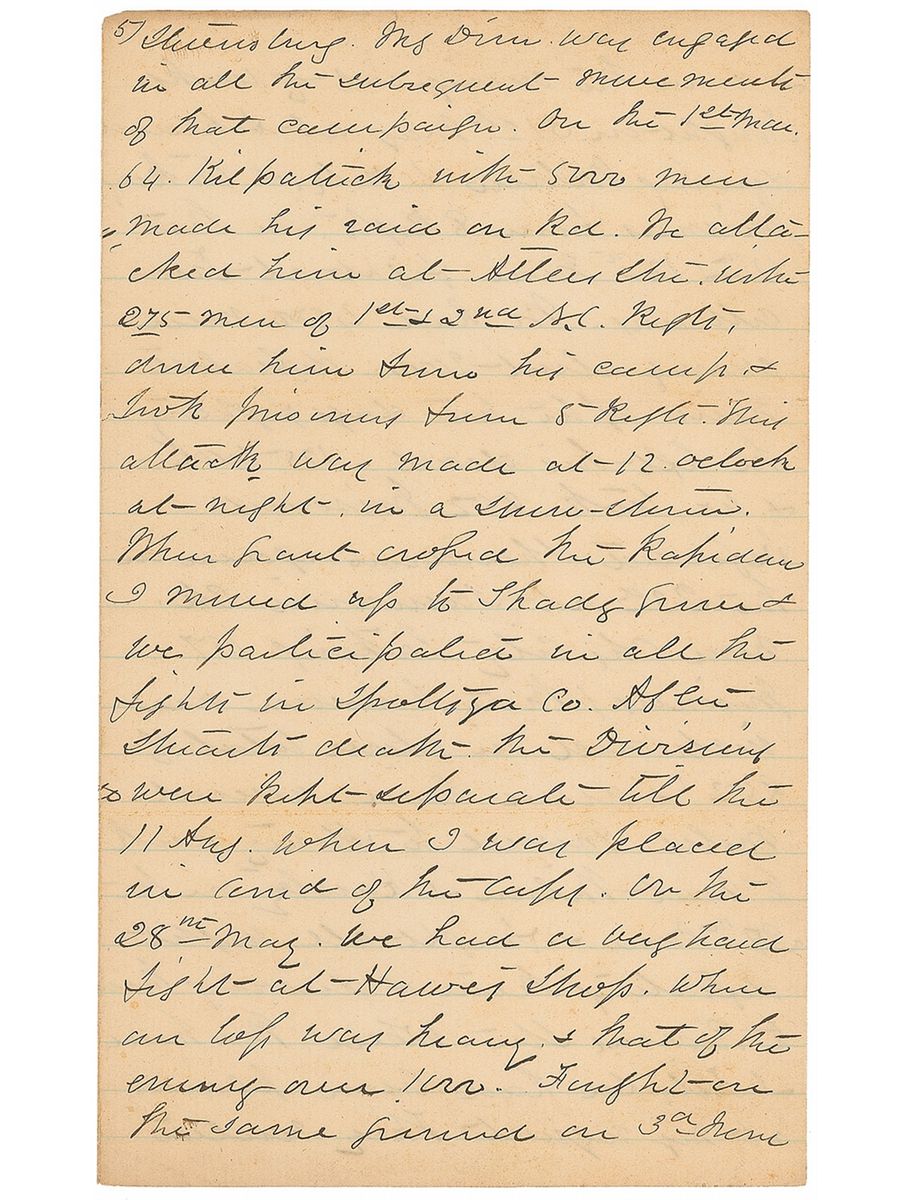 5) Stevensburg. My Divn. was engaged
in all the subsequent movements
of that campaign. On the 1st Mar.
64. Kilpatrick with 5000 men
made his raid on Rd. We atta-
cked him at Atlees Stn. with
275 men of 1st & 2nd N.C. Regts,
drove him from his camp, &
took prisoners from 5 Regts. This
attack was made at 12 oclock
at night, in a snow-storm.
When Grant crossed the Rapidan
I moved up to Shady Grove &
we participated in all the
fights in Spottsya Co. After
Stuarts death the Divisions
x were kept separate till the
11 Aug. when I was placed
in comd of the Corps. On the
28th May. we had a very hard
fight at Hawes Shop. When
our loss was heavy, & that of the
enemy over 1000. Fought on
the same ground on 3d June